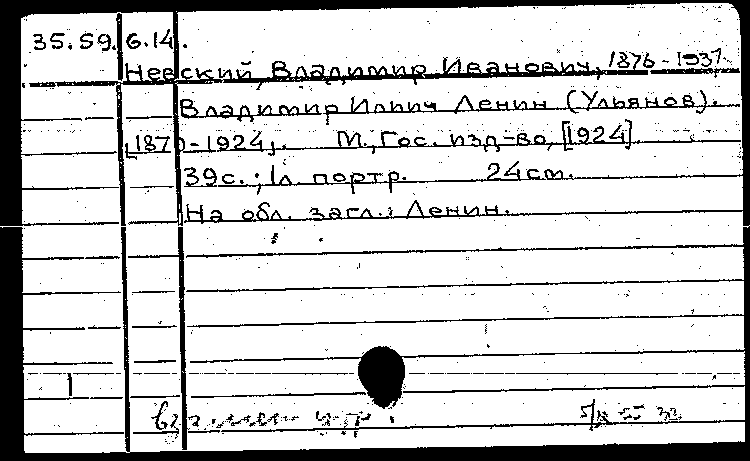 35.59.6.14.
Невский, Владимир Иванович, 1876-1937.
Владимир Илич Ленин (Ульянов).
[1870-1924]. М., Гос. изд-во, [1924].
39с.; 1л портр. 24см.
На обл. загл.: Ленин.
1
взамен утр.